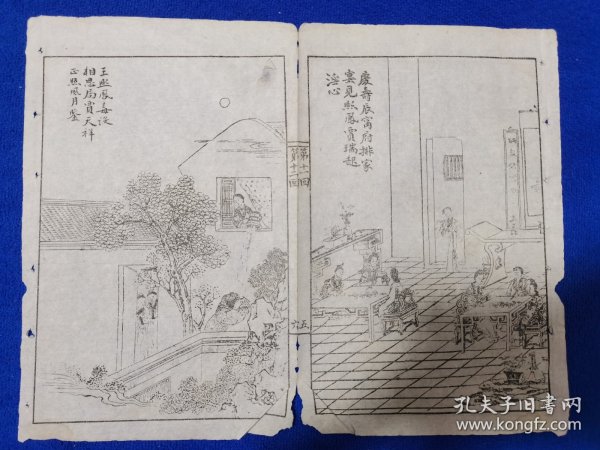 慶壽辰寧府排家
宴見熙鳳賈瑞起
淫心
王熙鳳毒設
相思局賈天祥
正照風月鑒
第十一回
第十二回
五
六
孔夫子旧書网
www.kongfz.com